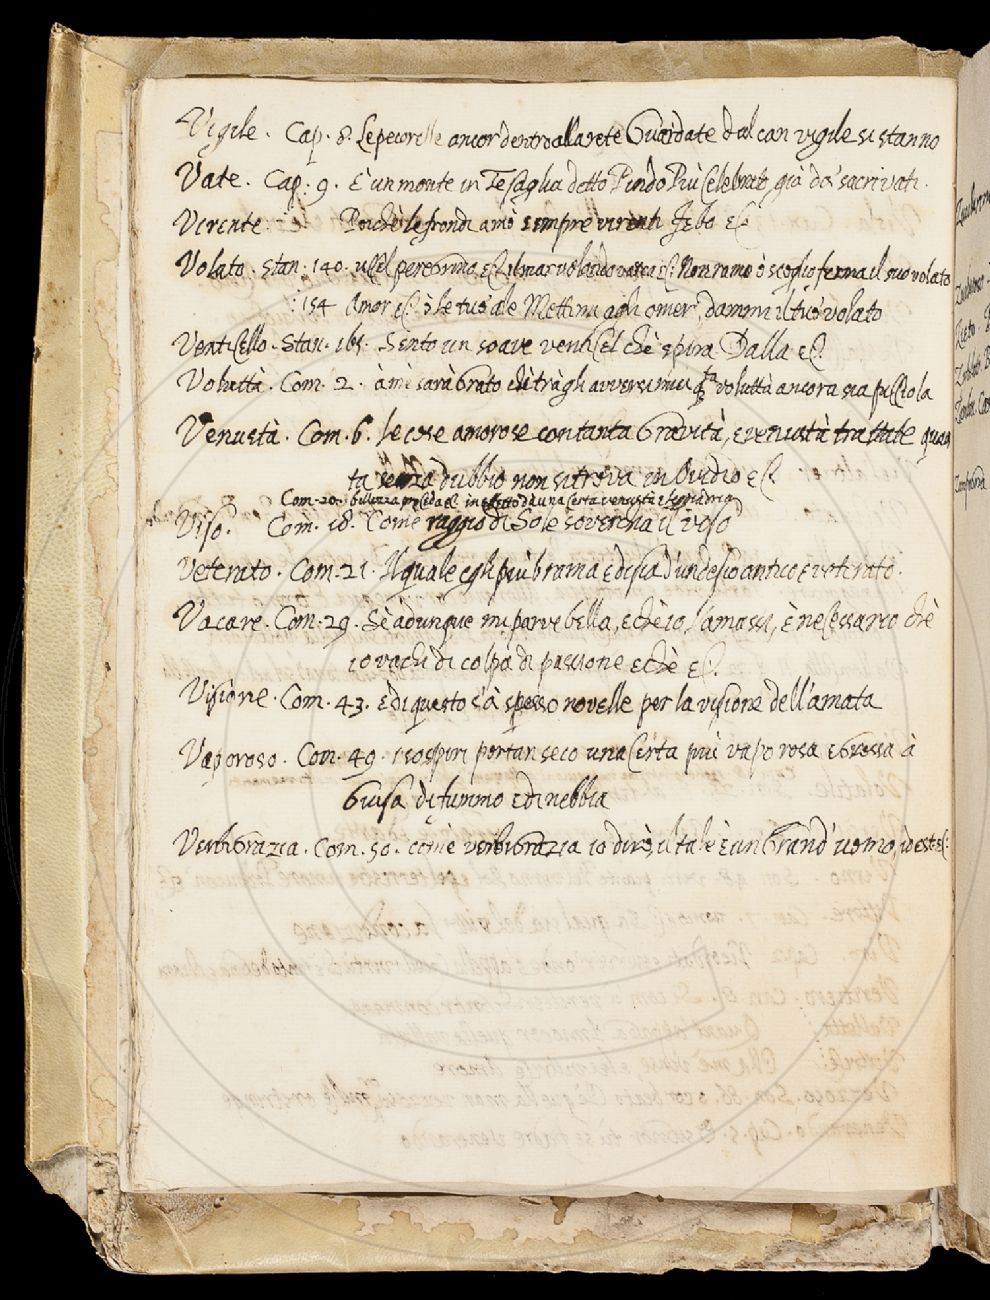 Vigile. Cap. 8. Le pecorelle ancor dentro alla rete Guardate dal can vigile si stanno
Vate. Cap. 9. È un monte in Tesaglia detto Pindo Più celebrato già da sacri vati.
Virente: Poichè le frondi amò sempre virenti Febo ec.
Volato. Stan. 140. ec. il mar volando varca ec. Non ramo ò scoglio ferma il suo volato
: 154 Amor ec. ò le tue ale Mettimi agli omeri, dammi il tuo volato
Venticello. Stan. 165. Sento un soave venticel chè spira Dalla ec.
Voluttà. Com. 2. à mè sarà grato voluttà ancora sia picciola
Venustà. Com. 6. le cose amorose con tanta Gravità, e venustà trattate quan
ta senza dubbio non si trova in Ovidio ec.
Com. 20. bellezza proceda ec. in effetto da una certa venustà e leggiadria
Viso. Com. 18. Come raggio di Sole soverchia il viso
Veterato. Com. 21. Il quale egli più brama e disia d'un desio antico e veterato.
Vacare. Com. 29. Sè adunque mi parve bella, e chè io l'amassi, è necessario chè
io vachi di colpa di passione e chè ec.
Visione. Com. 43. È di questo s'à spesso novelle per la visione dell'amata
Vaporoso. Com. 49. i sospiri portan seco una certa più vaporosa e Grossa à
Guisa di fummo e di nebbia
Verbigrazia. Com. 50. comè verbigrazia io dirò, il tale è un Grand'uomo, idest ec.